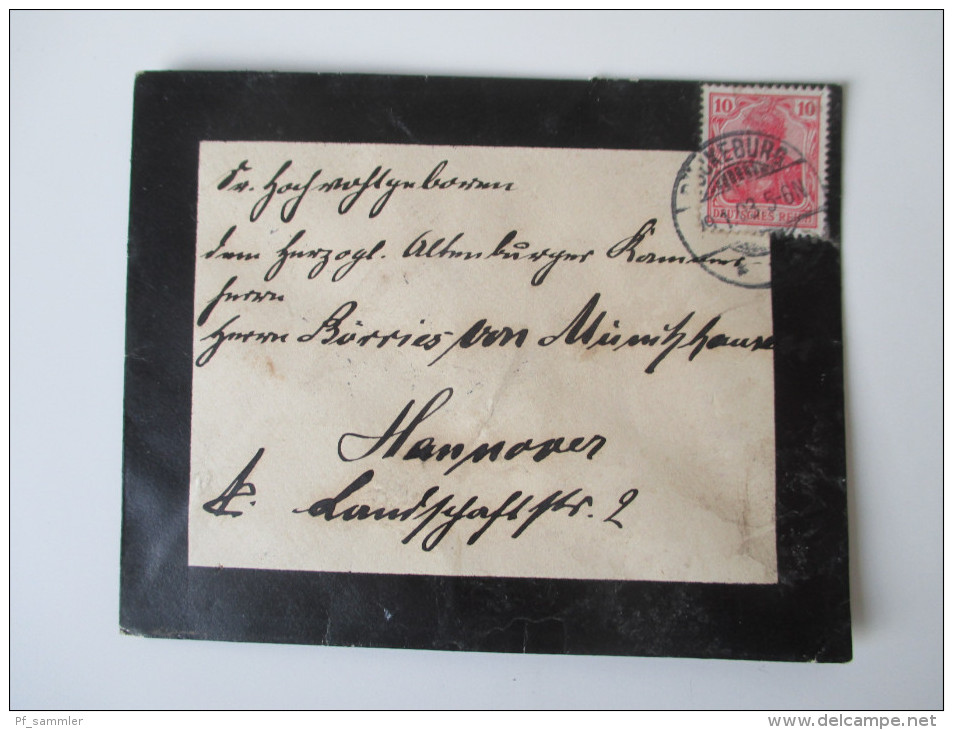 10 10
BÜCKEBURG
03. 5-6N.
DEUTSCHES REICH
Sr. Hochwohlgeboren
dem Herzogl. Altenburger Kammer-
herrn
Herrn Börries von Münchhausen
Hannover
Landschaftstr. 2
Pf_sammler
www.delcampe.net